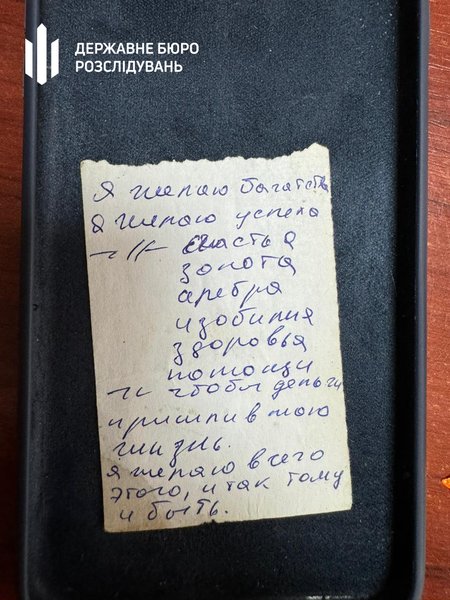 ДЕРЖАВНЕ БЮРО
РОЗСЛІДУВАНЬ
Я желаю богатства
Я желаю успеха
–//– счастья
золота
серебра
изобилия
здоровья
помощи
–//– чтобы деньги
пришли в мою
жизнь.
Я желаю всего
этого, и так тому
и быть.